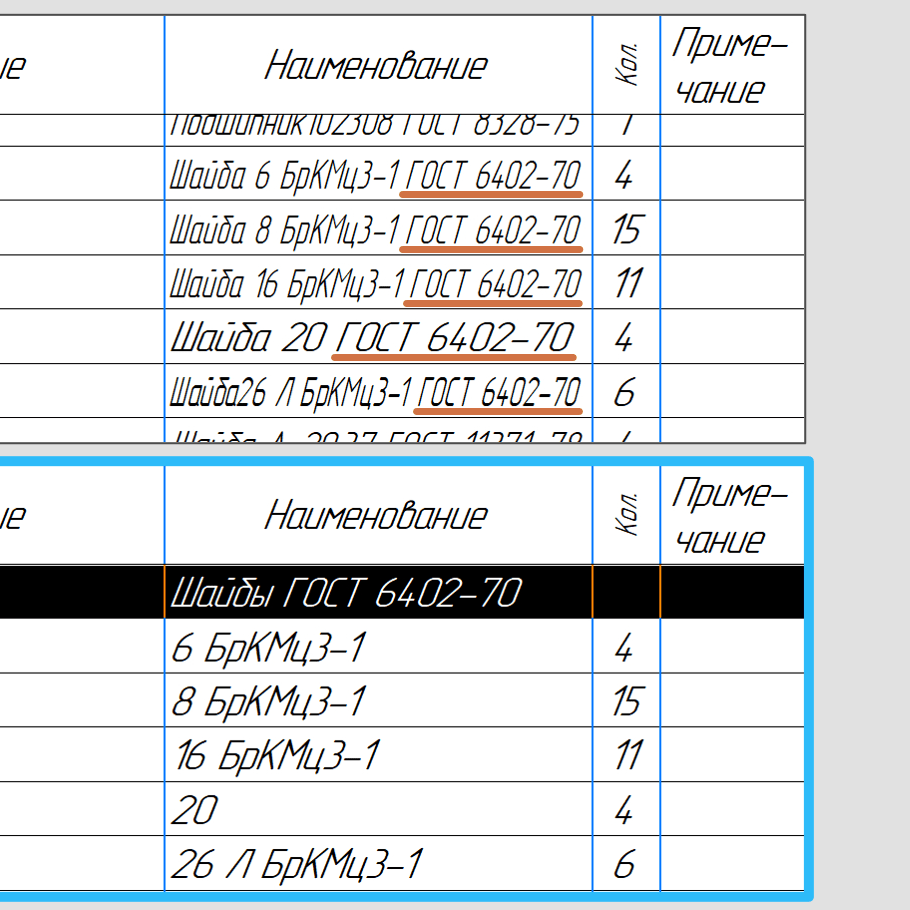 ие Наименование Кол. Приме-
чание
Подшипник 102308 ГОСТ 8328-75 1
Шайба 6 БрКМц3-1 ГОСТ 6402-70 4
Шайба 8 БрКМц3-1 ГОСТ 6402-70 15
Шайба 16 БрКМц3-1 ГОСТ 6402-70 11
Шайба 20 ГОСТ 6402-70 4
Шайба26 Л БрКМц3-1 ГОСТ 6402-70 6
Шайба А ГОСТ 11371-78
ие Наименование Кол. Приме-
чание
Шайбы ГОСТ 6402-70
6 БрКМц3-1 4
8 БрКМц3-1 15
16 БрКМц3-1 11
20 4
26 Л БрКМц3-1 6